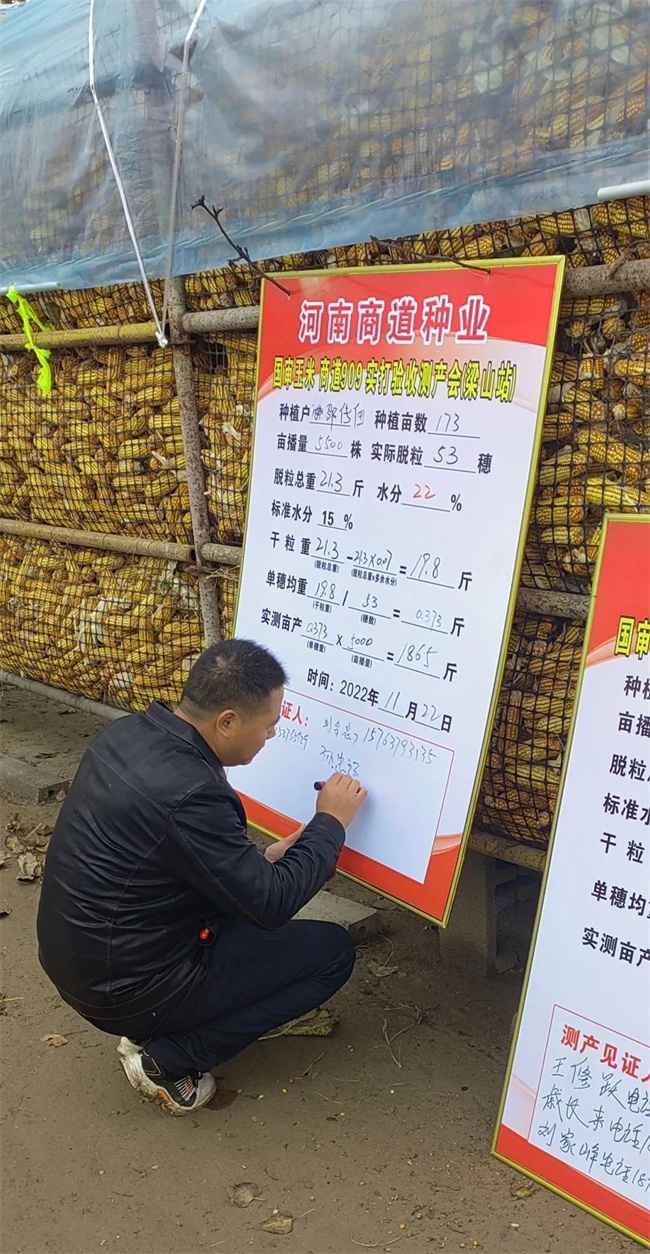 河南商道种业
国审玉米 商道909 实打验收测产会(梁山站)
种植户 种植亩数 173
亩播量 5500 株 实际脱粒 53 穗
脱粒总重 21.3 斤 水分 22 %
标准水分 15 %
干粒重 21.3 - 21.3×0.07 = 19.8 斤
(脱粒总重) (脱粒总重×多余水分)
单穗均重 19.8 / 53 = 0.373 斤
(干粒重) (穗数)
实测亩产 0.373 × 5000 = 1865 斤
(单穗重) (亩播量)
时间：2022年 11 月 22 日
证人：
15763793135
国审
种植
亩播
脱粒
标准水
干 粒
单穗均
实测亩产
测产见证人
王修跃 电话
戚长来 电话
刘家峰 电话